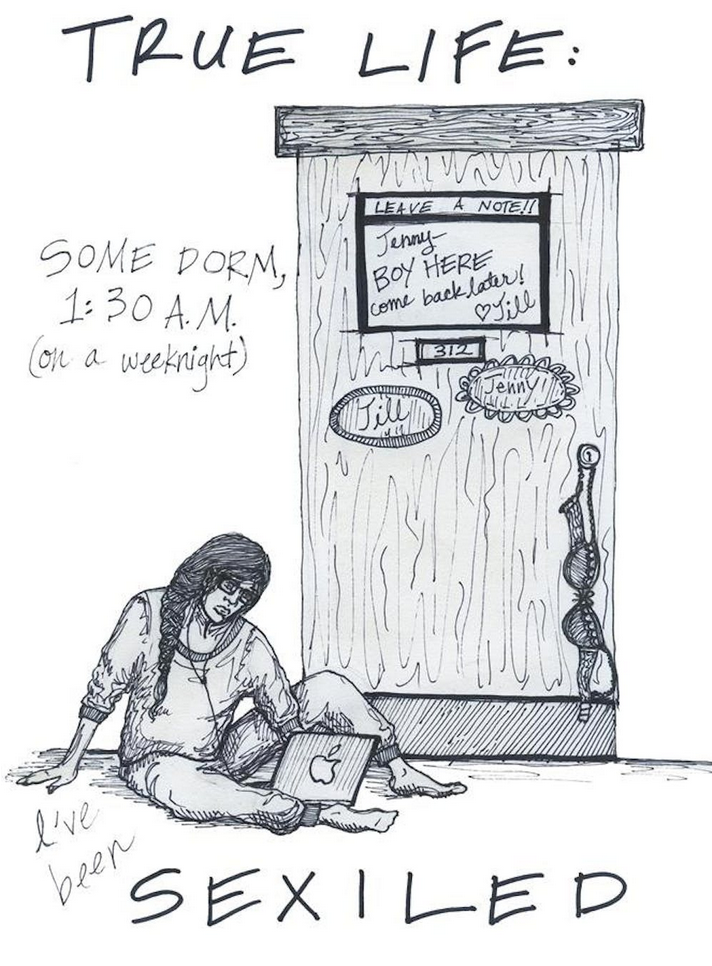 TRUE LIFE:
SOME DORM,
1:30 A.M.
(on a weeknight)
LEAVE A NOTE!!
Jenny-
BOY HERE
come back later!
♡Jill
312
Jill
Jenny
I've
been
SEXILED